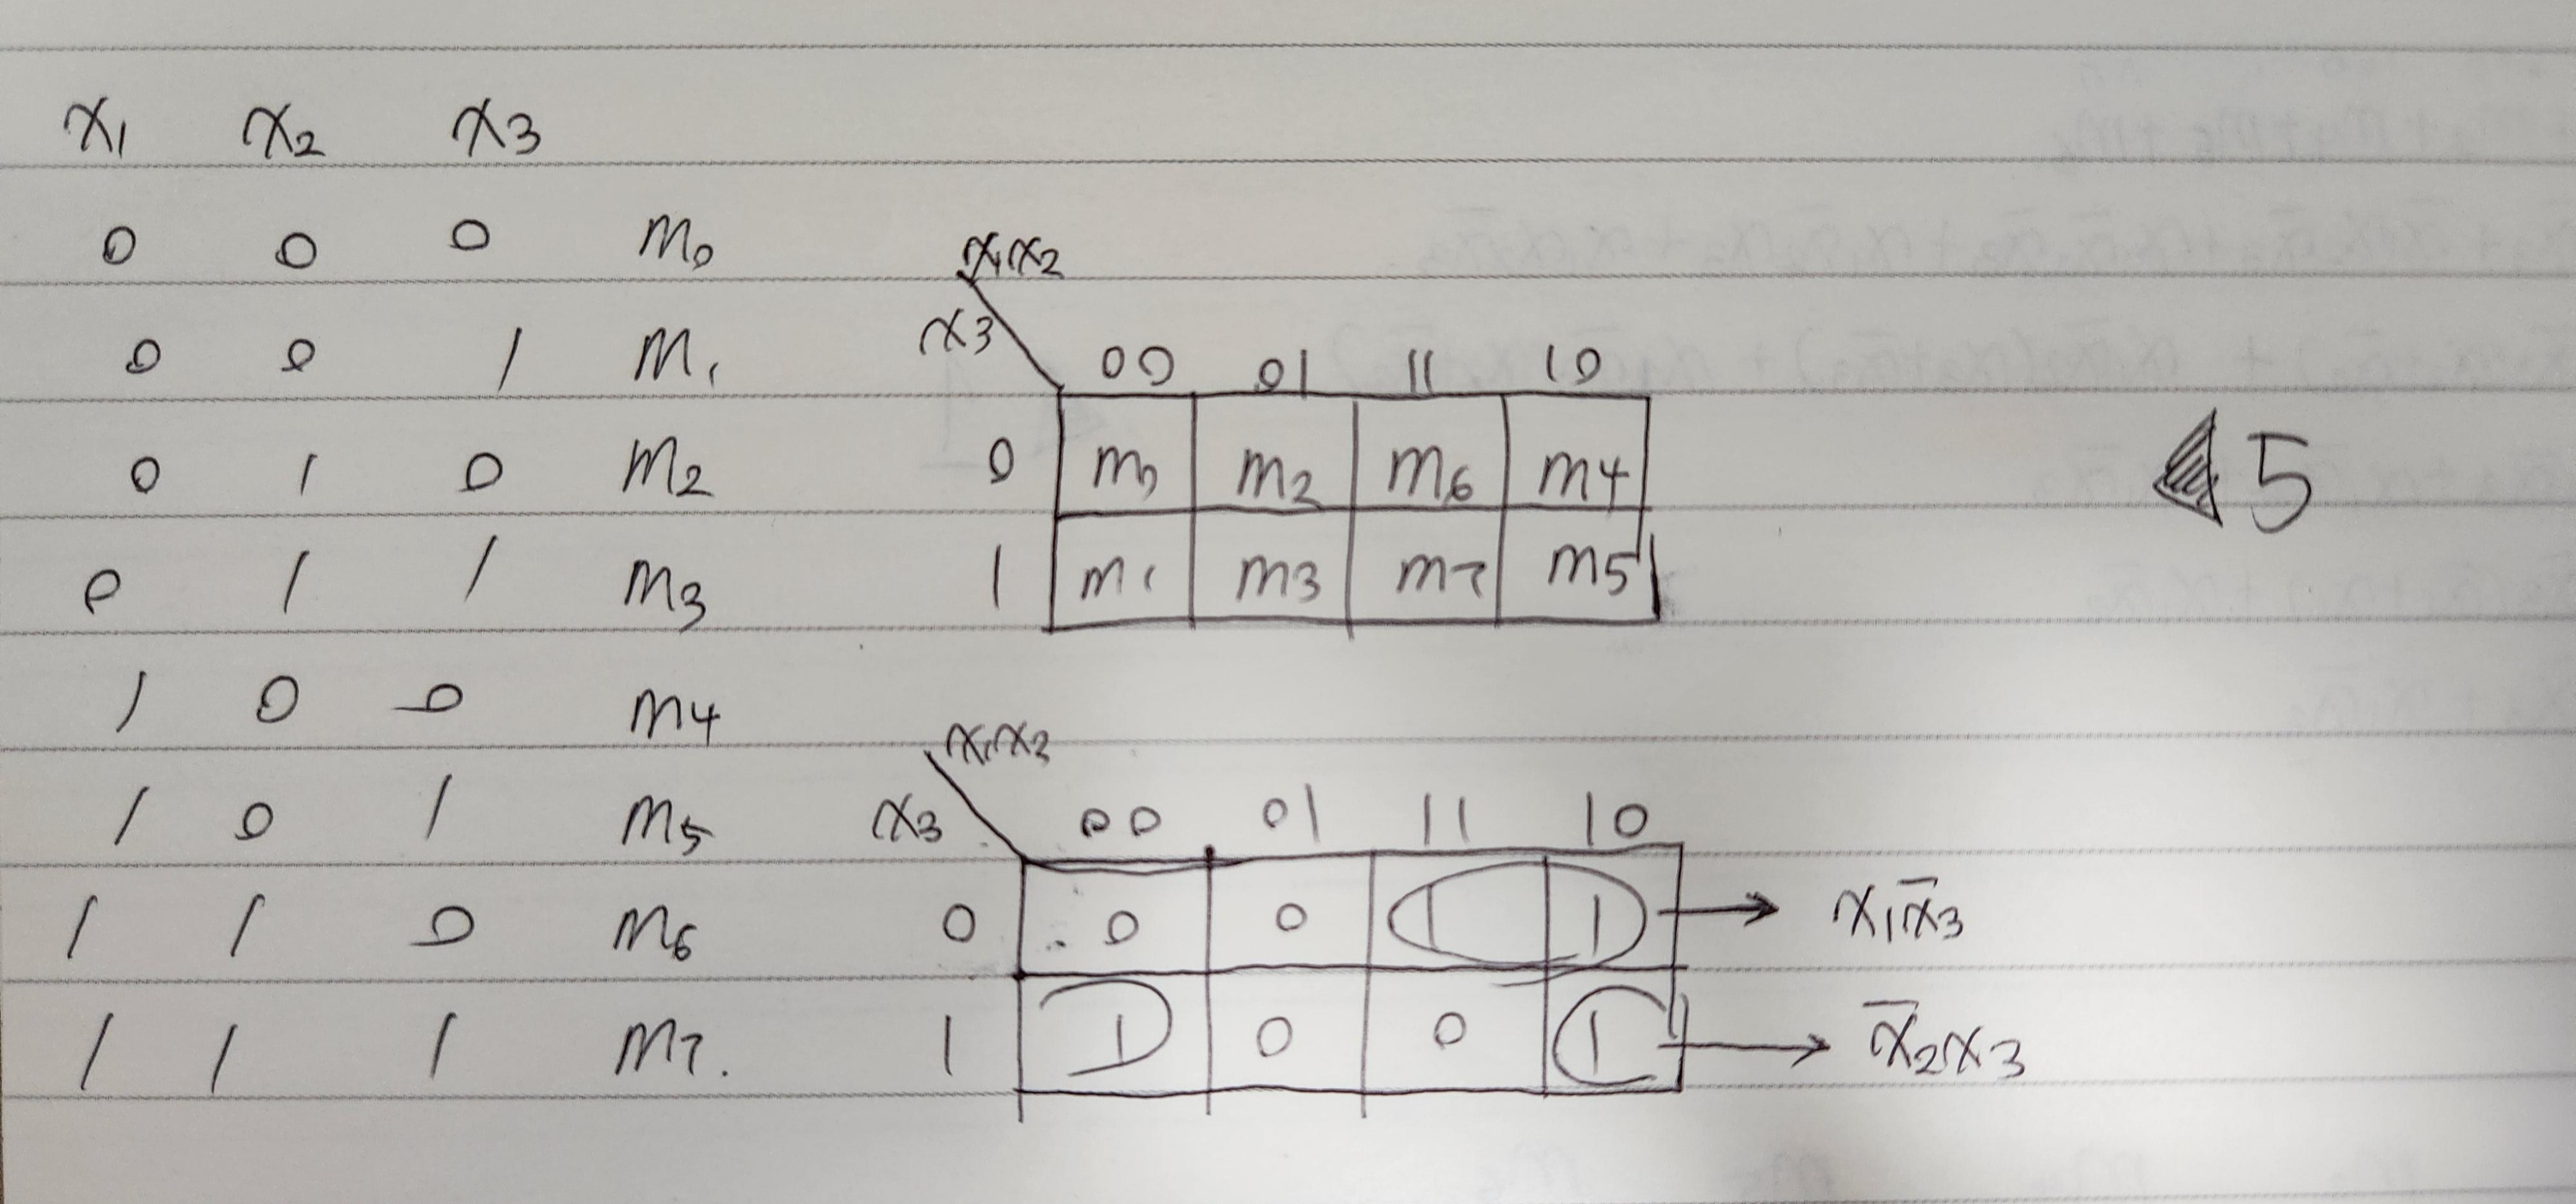 x₁ x₂ x₃
0 0 0 m₀
0 0 1 m₁
0 1 0 m₂
0 1 1 m₃
1 0 0 m₄
1 0 1 m₅
1 1 0 m₆
1 1 1 m₇.
x₁x₂
x₃ 00 01 11 10
0 m₀ m₂ m₆ m₄
1 m₁ m₃ m₇ m₅
5
x₁x₂
x₃ 00 01 11 10
0 0 0 1 1 → x₁x̄₃
1 1 0 0 1 → x̄₂x₃